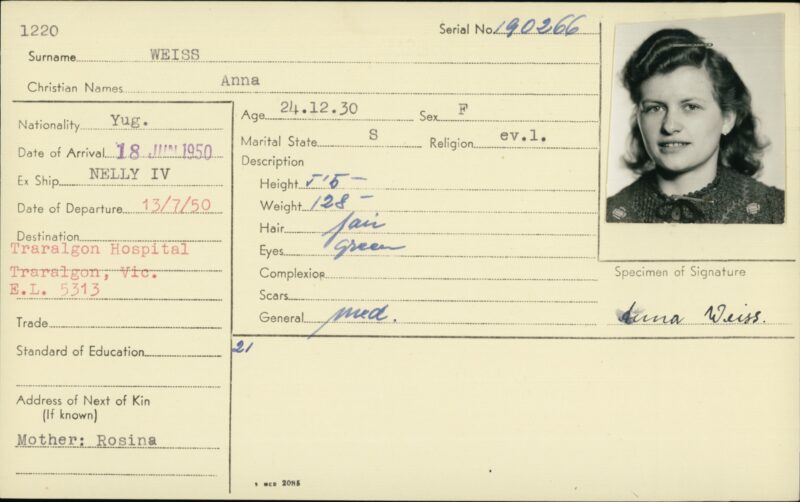 1220
Serial No. 190266
Surname WEISS
Christian Names Anna
Nationality Yug.
Date of Arrival 18 JUN 1950
Ex Ship NELLY IV
Date of Departure 13/7/50
Destination
Traralgon Hospital
Traralgon, Vic.
E.L. 5313
Trade
Standard of Education
Address of Next of Kin
(If known)
Mother: Rosina
Age 24.12.30 Sex F
Marital State S Religion ev.l.
Description
Height 5'5-
Weight 128-
Hair fair
Eyes green
Complexion
Scars
General med.
21
Specimen of Signature
Anna Weiss.
2085